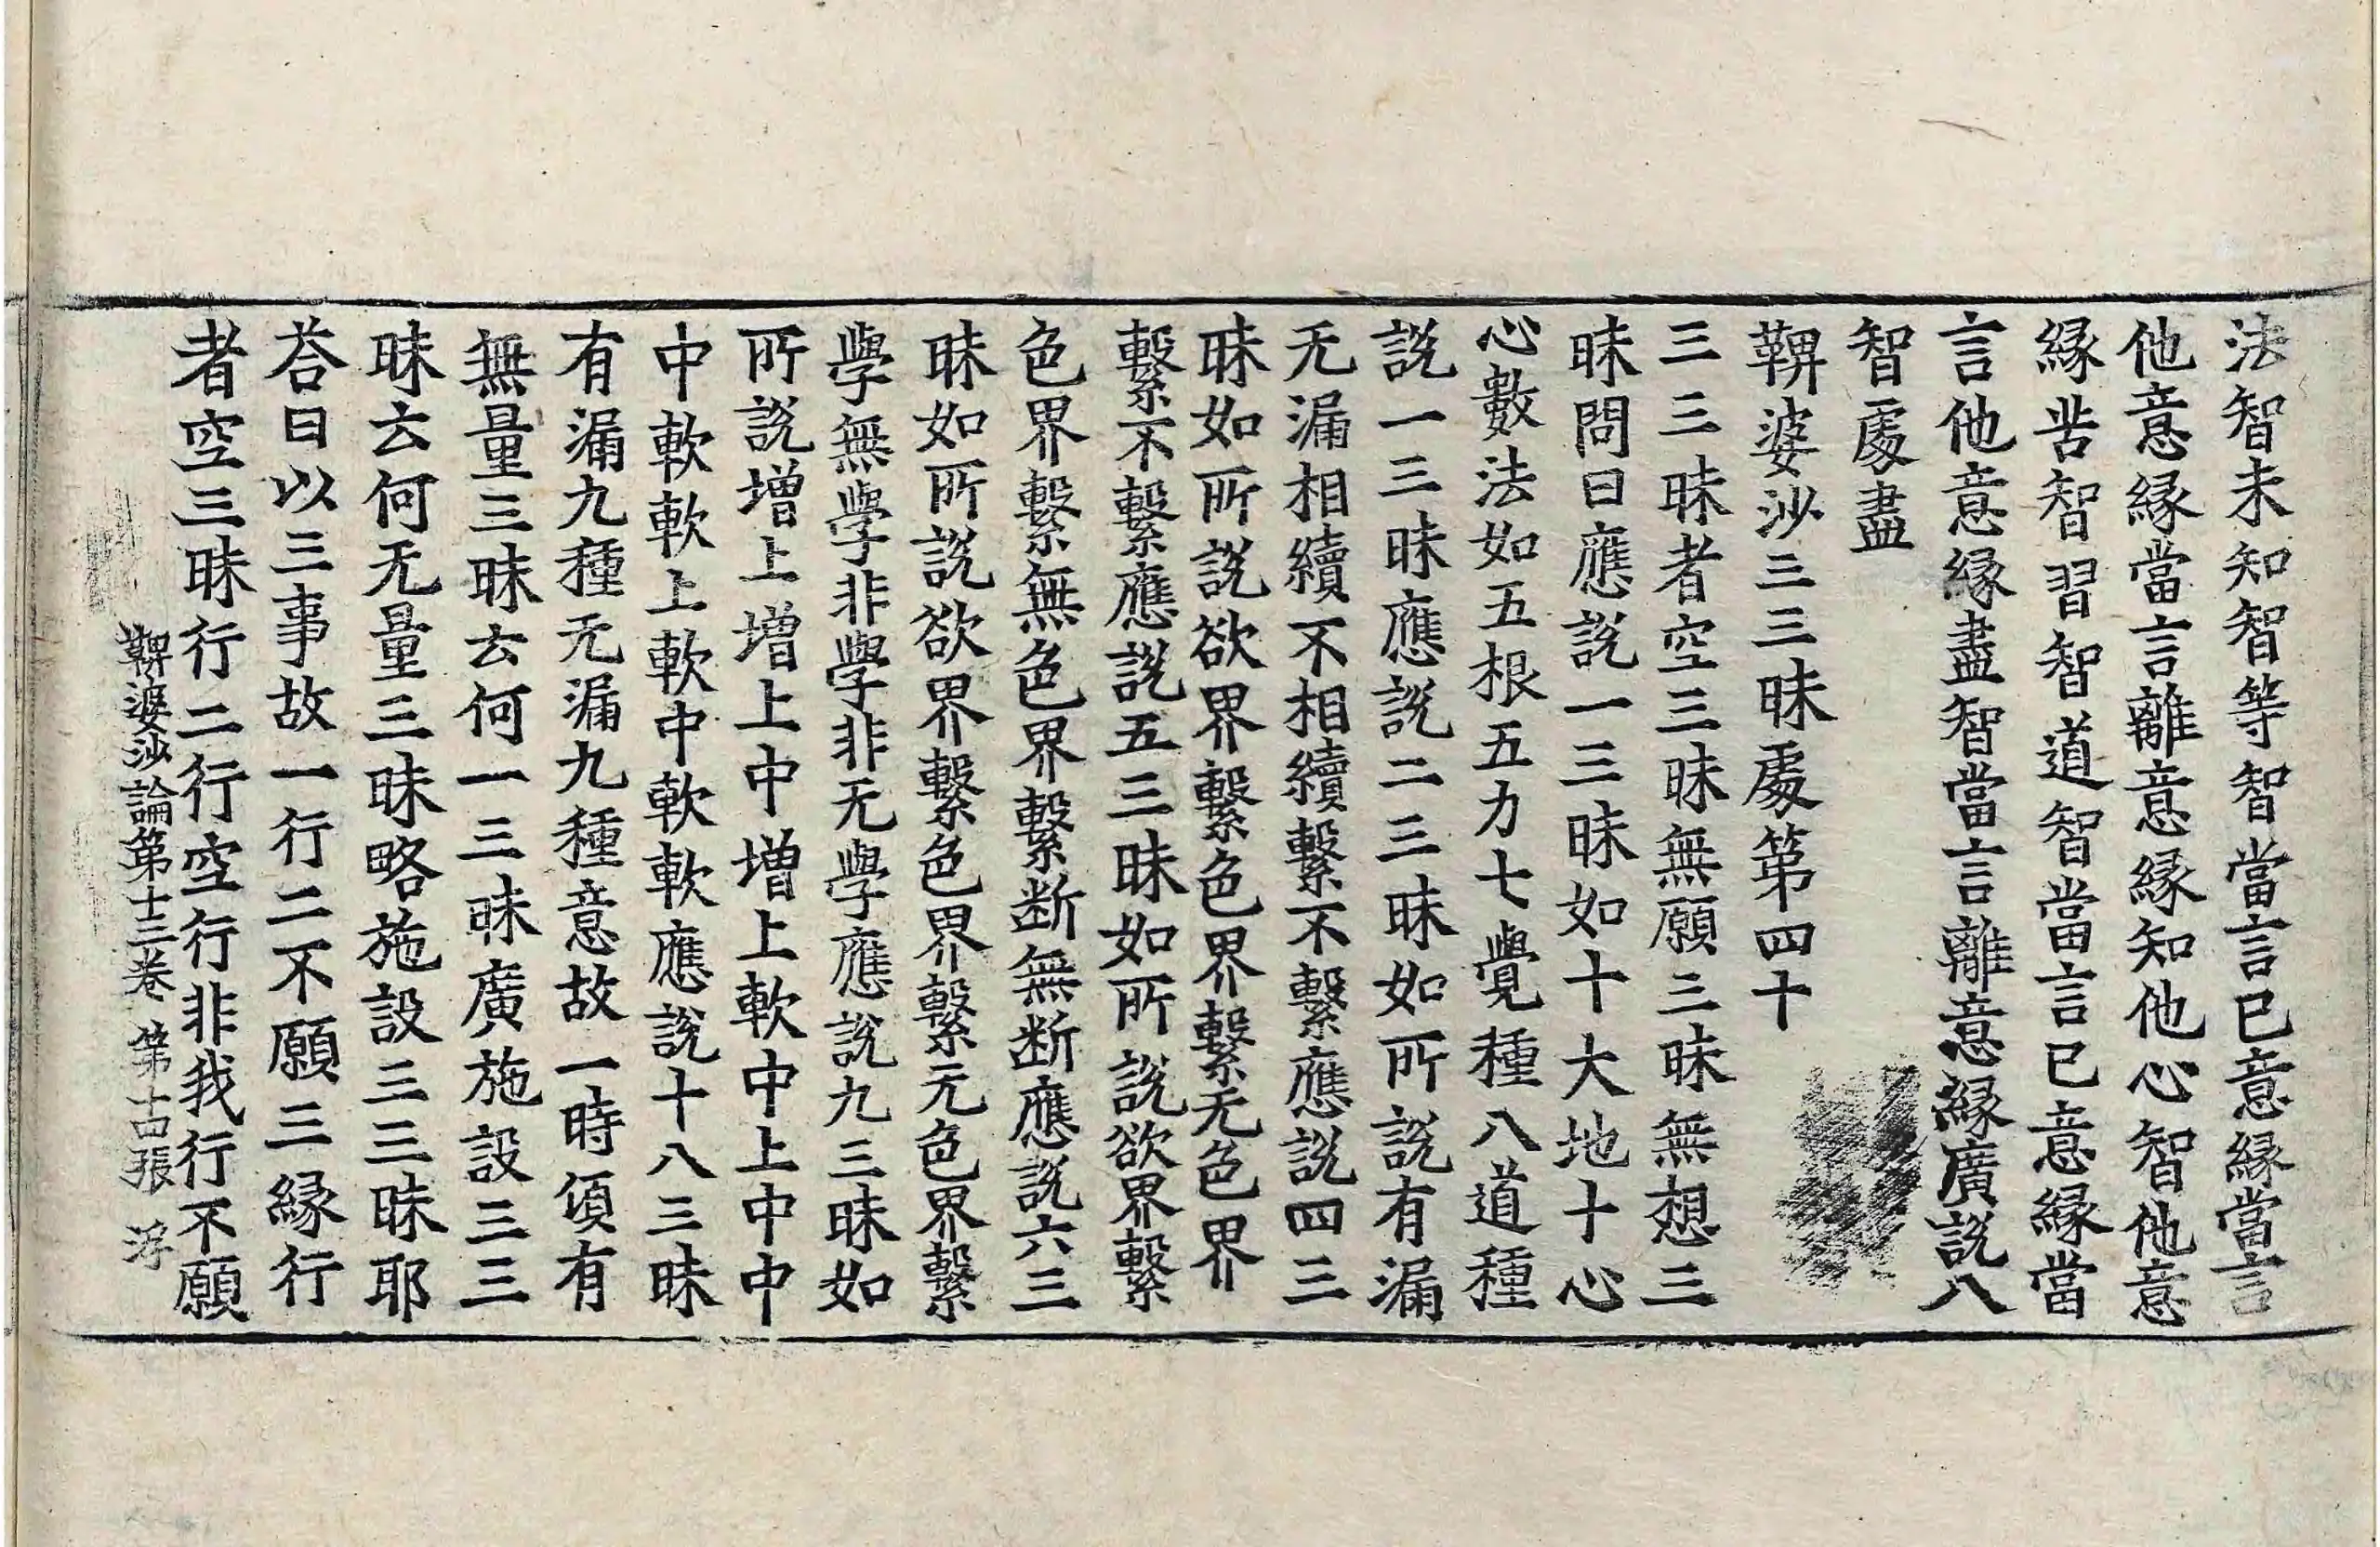 法智未知智等智當言已意緣當言
他意緣當言離意緣知他心智他意
緣苦智習智道智當言已意緣當
言他意緣盡智當言離意緣廣說八
智處盡
鞞婆沙三三昧處第四十
三三昧者空三昧無願三昧無想三
昧問曰應說一三昧如十大地十心
心數法如五根五力七覺種八道種
說一三昧應說二三昧如所說有漏
无漏相續不相續繫不繫應說四三
昧如所說欲界繫色界繫无色界
繫不繫應說五三昧如所說欲界繫
色界繫無色界繫断無断應說六三
昧如所說欲界繫色界繫无色界繫
學無學非學非无學應說九三昧如
所說增上增上中增上軟中上中中
中軟軟上軟中軟軟應說十八三昧
有漏九種无漏九種意故一時湏有
無量三昧云何一三昧廣施設三三
昧云何无量三昧略施設三三昧耶
荅曰以三事故一行二不願三緣行
者空三昧行二行空行非我行不願
鞞婆沙論第十三卷 第十四張 浮